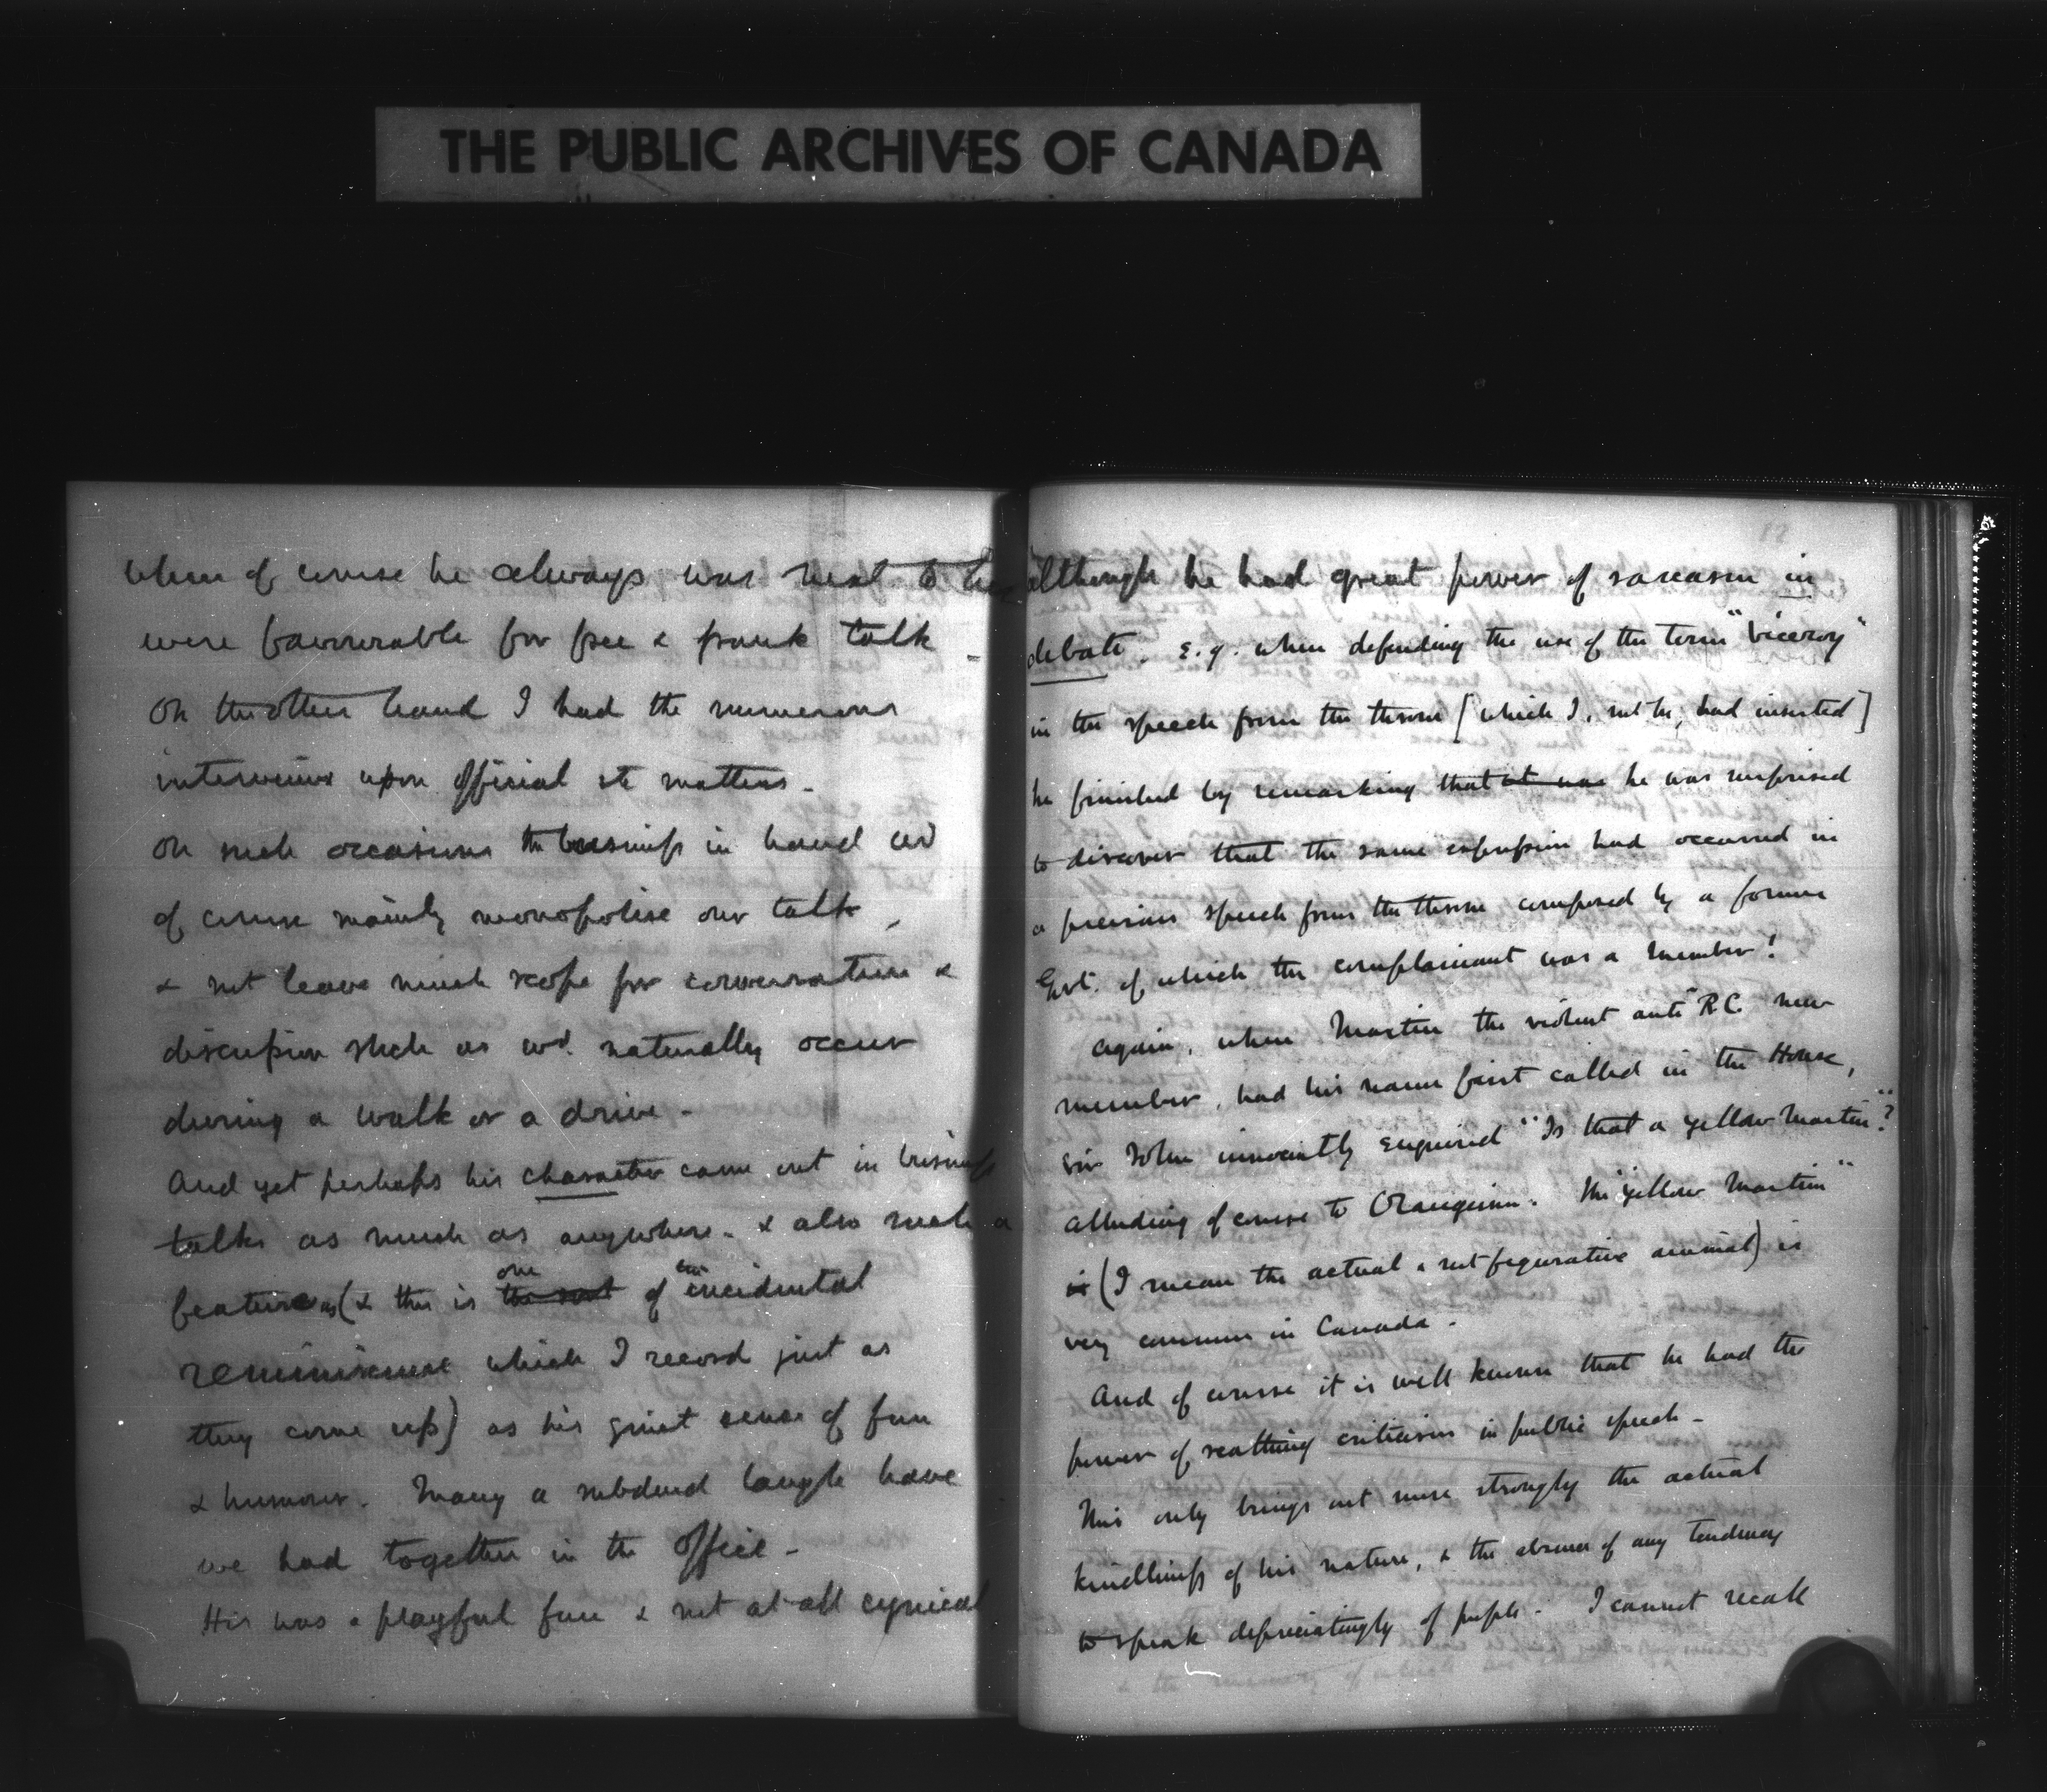 THE PUBLIC ARCHIVES OF CANADA
when of course he always was next to her
were favourable for free & frank talk -
On the other hand I had the numerous
interviews upon official etc matters -
On such occasions the business in hand wd
of course mainly monopolise our talk,
& not leave much scope for conversation &
discussion such as wd. naturally occur
during a walk or a drive -
And yet perhaps his character came out in business
talks as much as anywhere - & also such a
feature as (& this is one the sort of the incidental
reminiscence which I record just as
they come up) as his quiet sense of fun
& humour. Many a subdued laugh have
we had together in the office -
His was a playful fun & not at all cynical
12
although he had great power of sarcasm in
debate. E.g. when defending the use of the term "Viceroy"
in the speech from the throne [which I, not he, had inserted]
he finished by remarking that it was he was surprised
to discover that the same expression had occurred in
a previous speech from the throne composed by a former
Govt. of which the complainant was a member!
Again, when Martin the violent anti R.C. new
member, had his name first called in the House,
Sir John innocently enquired "Is that a yellow Martin"?
alluding of course to Orangeism. The "yellow Martin"
is (I mean the actual & not figurative animal) is
very common in Canada.
And of course it is well known that he had the
power of scathing criticism in public speech -
This only brings out more strongly the actual
kindliness of his nature, & the absence of any tendency
to speak depreciatingly of people. I cannot recall